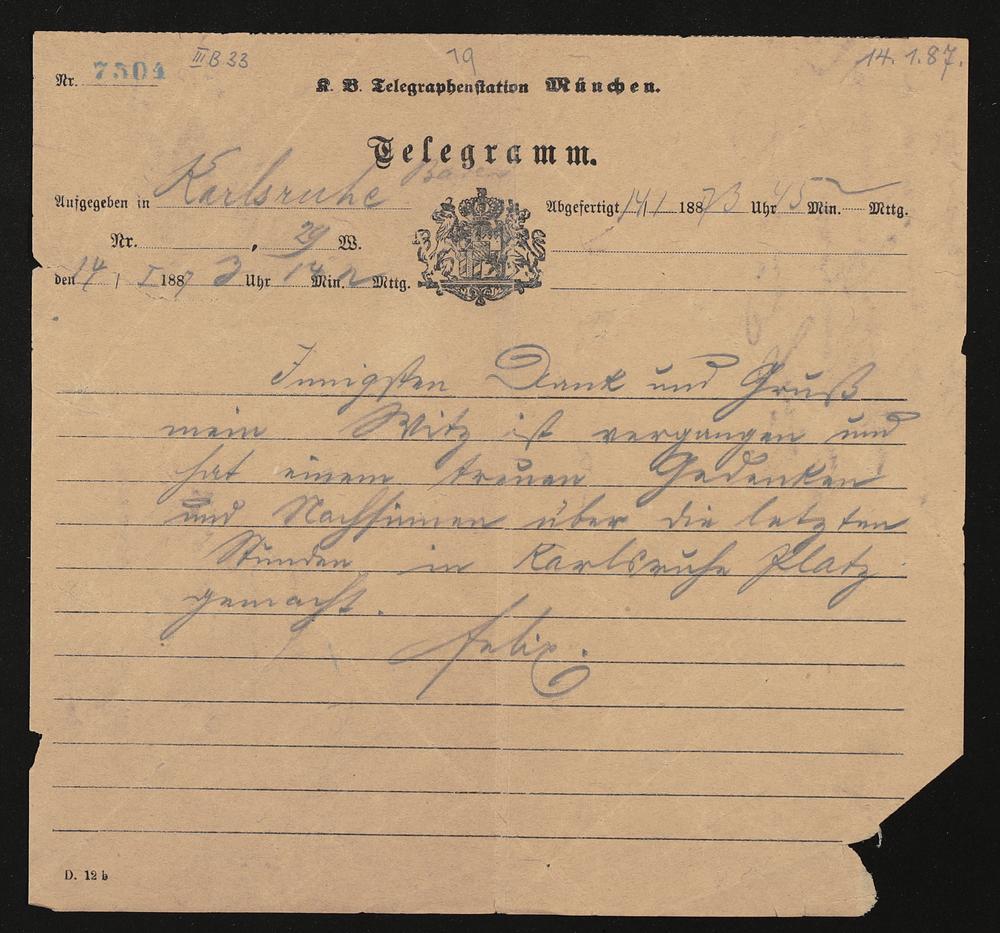 Nr. 7504
III B 33
19
14. 1. 87.
K. B. Telegraphenstation München.
Telegramm.
Aufgegeben in Karlsruhe Baden
Abgefertigt 14/1 1887 3 Uhr 45 Min. Mttg.
Nr. 29 W.
den 14 / I 1887 3 Uhr 14 Min. Mttg.
Innigsten Dank und Gruß
mein Witz ist vergangen und
hat einem treuen Gedenken
und Nachsinnen über die letzten
Stunden in Karlsruhe Platz
gemacht.
Felix.
D. 12 b